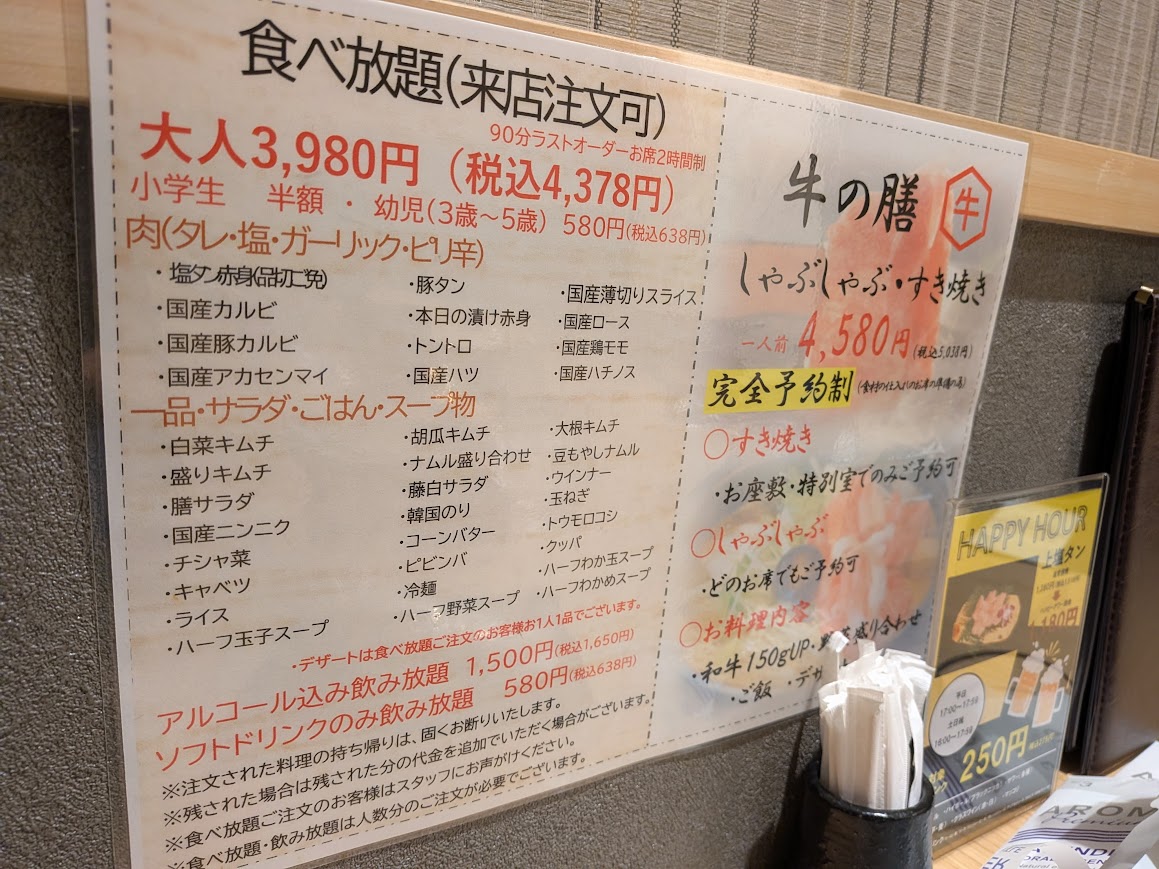 食べ放題(来店注文可)
90分ラストオーダーお席2時間制
大人3,980円（税込4,378円）
小学生 半額・幼児(3歳～5歳) 580円(税込638円)
肉(タレ・塩・ガーリック・ピリ辛)
・塩タン赤身(品切ご免)
・国産カルビ
・国産豚カルビ
・国産アカセンマイ
・豚タン
・本日の漬け赤身
・トントロ
・国産ハツ
・国産薄切りスライス
・国産ロース
・国産鶏モモ
・国産ハチノス
一品・サラダ・ごはん・スープ物
・白菜キムチ
・盛りキムチ
・膳サラダ
・国産ニンニク
・チシャ菜
・キャベツ
・ライス
・ハーフ玉子スープ
・胡瓜キムチ
・ナムル盛り合わせ
・藤白サラダ
・韓国のり
・コーンバター
・ビビンバ
・冷麺
・ハーフ野菜スープ
・大根キムチ
・豆もやしナムル
・ウインナー
・玉ねぎ
・トウモロコシ
・クッパ
・ハーフわか玉スープ
・ハーフわかめスープ
・デザートは食べ放題ご注文のお客様お1人1品でございます。
アルコール込み飲み放題 1,500円(税込1,650円)
ソフトドリンクのみ飲み放題 580円(税込638円)
※注文された料理の持ち帰りは、固くお断りいたします。
※残された場合は残された分の代金を追加でいただく場合がございます。
※食べ放題ご注文のお客様はスタッフにお声がけください。
※食べ放題・飲み放題は人数分のご注文が必要でございます。
牛の膳
牛
しゃぶしゃぶ・すき焼き
一人前 4,580円(税込5,038円)
完全予約制
〇すき焼き
・お座敷・特別室でのみご予約可
〇しゃぶしゃぶ
・どのお席でもご予約可
〇お料理内容
・和牛150gUP・野菜盛り合わせ
・ご飯 ・デザ
HAPPY HOUR
上塩タン
平日
17:00～17:59
土日祝
16:00～17:59
250円
AROM